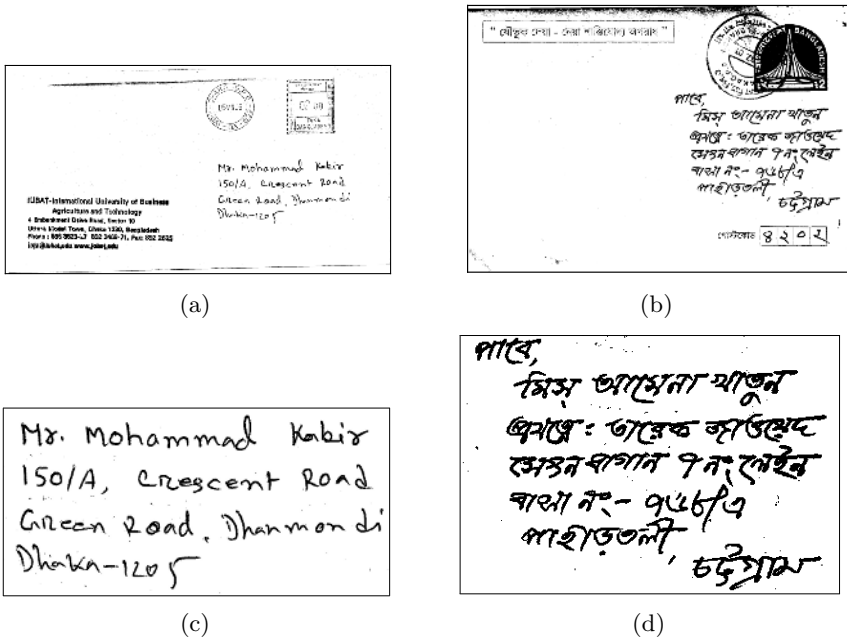 Mr. Mohammad Kabir
150/A, Crescent Road
Green Road, Dhanmondi
Dhaka-1205
IUBAT-International University of Business
Agriculture and Technology
4 Embankment Drive Road, Sector 10
Uttara Model Town, Dhaka 1230, Bangladesh
(a)
" যৌতুক দেয়া - নেয়া শাস্তিযোগ্য অপরাধ "
BANGLADESH
পাবে,
মিস্ আমেনা খাতুন
প্রযত্নে : তারেক জাওয়েদ
৭ নং লেইন
বাসা নং - ৭৬৮/এ
পাহাড়তলী,
চট্টগ্রাম
পোস্টকোড ৪২০২
(b)
Mr. Mohammad Kabir
150/A, Crescent Road
Green Road, Dhanmondi
Dhaka-1205
(c)
পাবে,
মিস্ আমেনা খাতুন
প্রযত্নে : তারেক জাওয়েদ
৭ নং লেইন
বাসা নং - ৭৬৮/এ
পাহাড়তলী,
চট্টগ্রাম
(d)